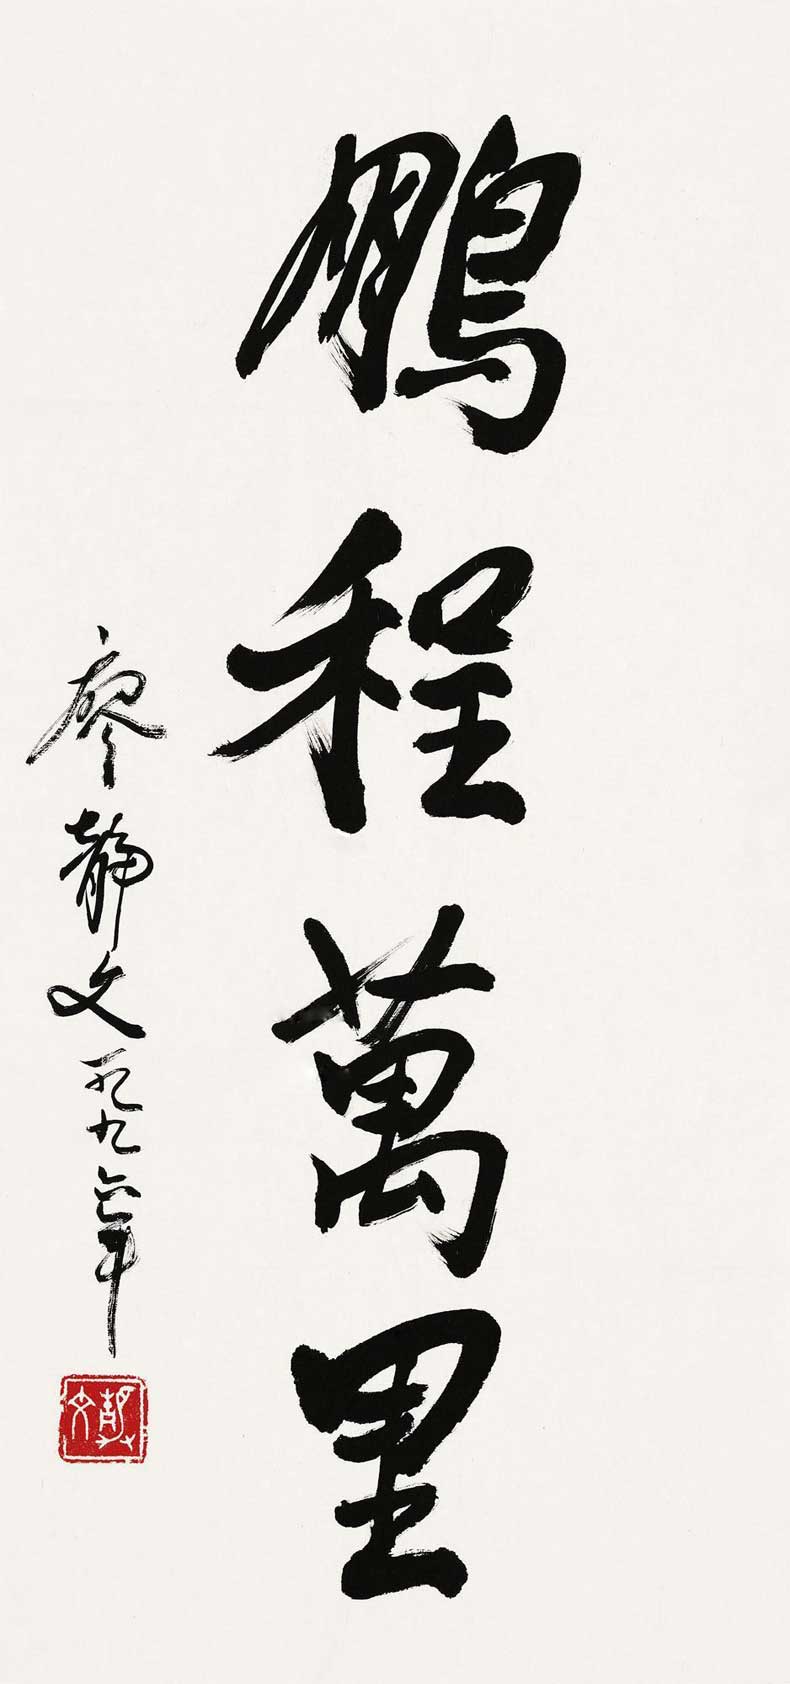 鵬程萬里
廖静文一九九六年
静文